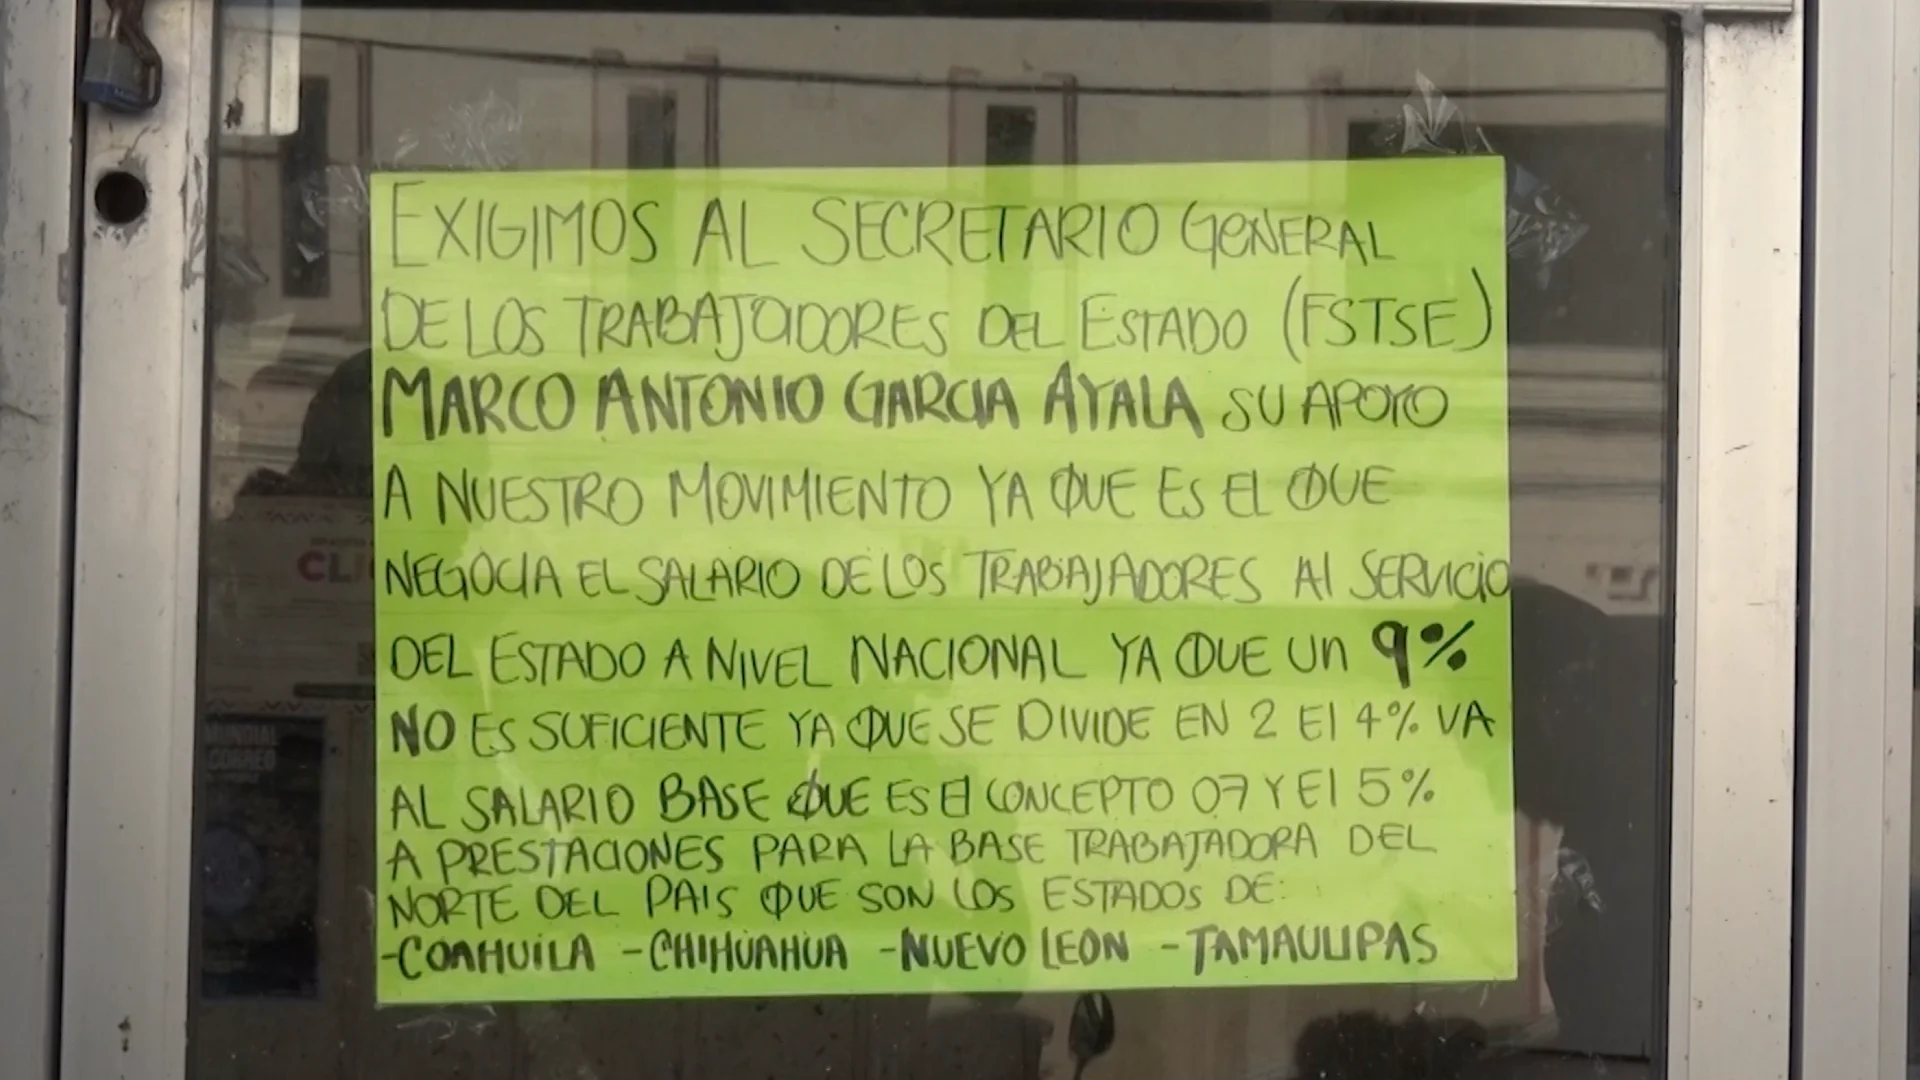 EXIGIMOS AL SECRETARIO GENERAL
DE LOS TRABAJADORES DEL ESTADO (FSTSE)
MARCO ANTONIO GARCIA AYALA SU APOYO
A NUESTRO MOVIMIENTO YA QUE ES EL QUE
NEGOCIA EL SALARIO DE LOS TRABAJADORES Al SERVICIO
DEL ESTADO A NIVEL NACIONAL YA QUE Un 9%
NO ES SUFICIENTE YA QUE SE DIVIDE EN 2 El 4% VA
AL SALARIO BASE QUE ES El CONCEPTO 07 Y El 5%
A PRESTACIONES PARA LA BASE TRABAJADORA DEL
NORTE DEL PAIS QUE SON LOS ESTADOS DE:
-COAHUILA -CHIHUAHUA -NUEVO LEON -TAMAULIPAS
MUNDIAL
CORREO